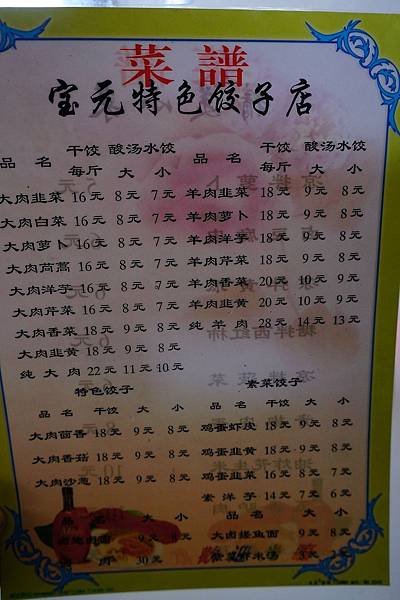 菜譜
宝元特色饺子店
品 名 干饺 每斤 酸汤水饺 大 小 品 名 干饺 每斤 酸汤水饺 大 小
大肉韭菜 16元 8元 7元 羊肉韭菜 18元 9元 8元
大肉白菜 16元 8元 7元 羊肉萝卜 18元 9元 8元
大肉萝卜 16元 8元 7元 羊肉洋芋 18元 9元 8元
大肉茼蒿 16元 8元 7元 羊肉芹菜 18元 9元 8元
大肉洋芋 16元 8元 7元 羊肉香菜 20元 10元 9元
大肉芹菜 16元 8元 7元 羊肉韭黄 20元 10元 9元
大肉香菜 18元 9元 8元 纯羊肉 28元 14元 13元
大肉韭黄 18元 9元 8元
纯大肉 22元 11元 10元
特色饺子 素菜饺子
品 名 干饺 大 小 品 名 干饺 大 小
大肉茴香 18元 9元 8元 鸡蛋虾皮 18元 9元 8元
大肉香菇 18元 9元 8元 鸡蛋韭黄 18元 9元 8元
大肉沙葱 18元 9元 8元 鸡蛋韭菜 16元 8元 7元
素洋芋 14元 7元 6元
品 名 大 小 品 名 大 小
大卤炖肉面 9元 8元 大卤 鱼面 9元 8元
肉 30元 紫菜虾米汤 3元 2元